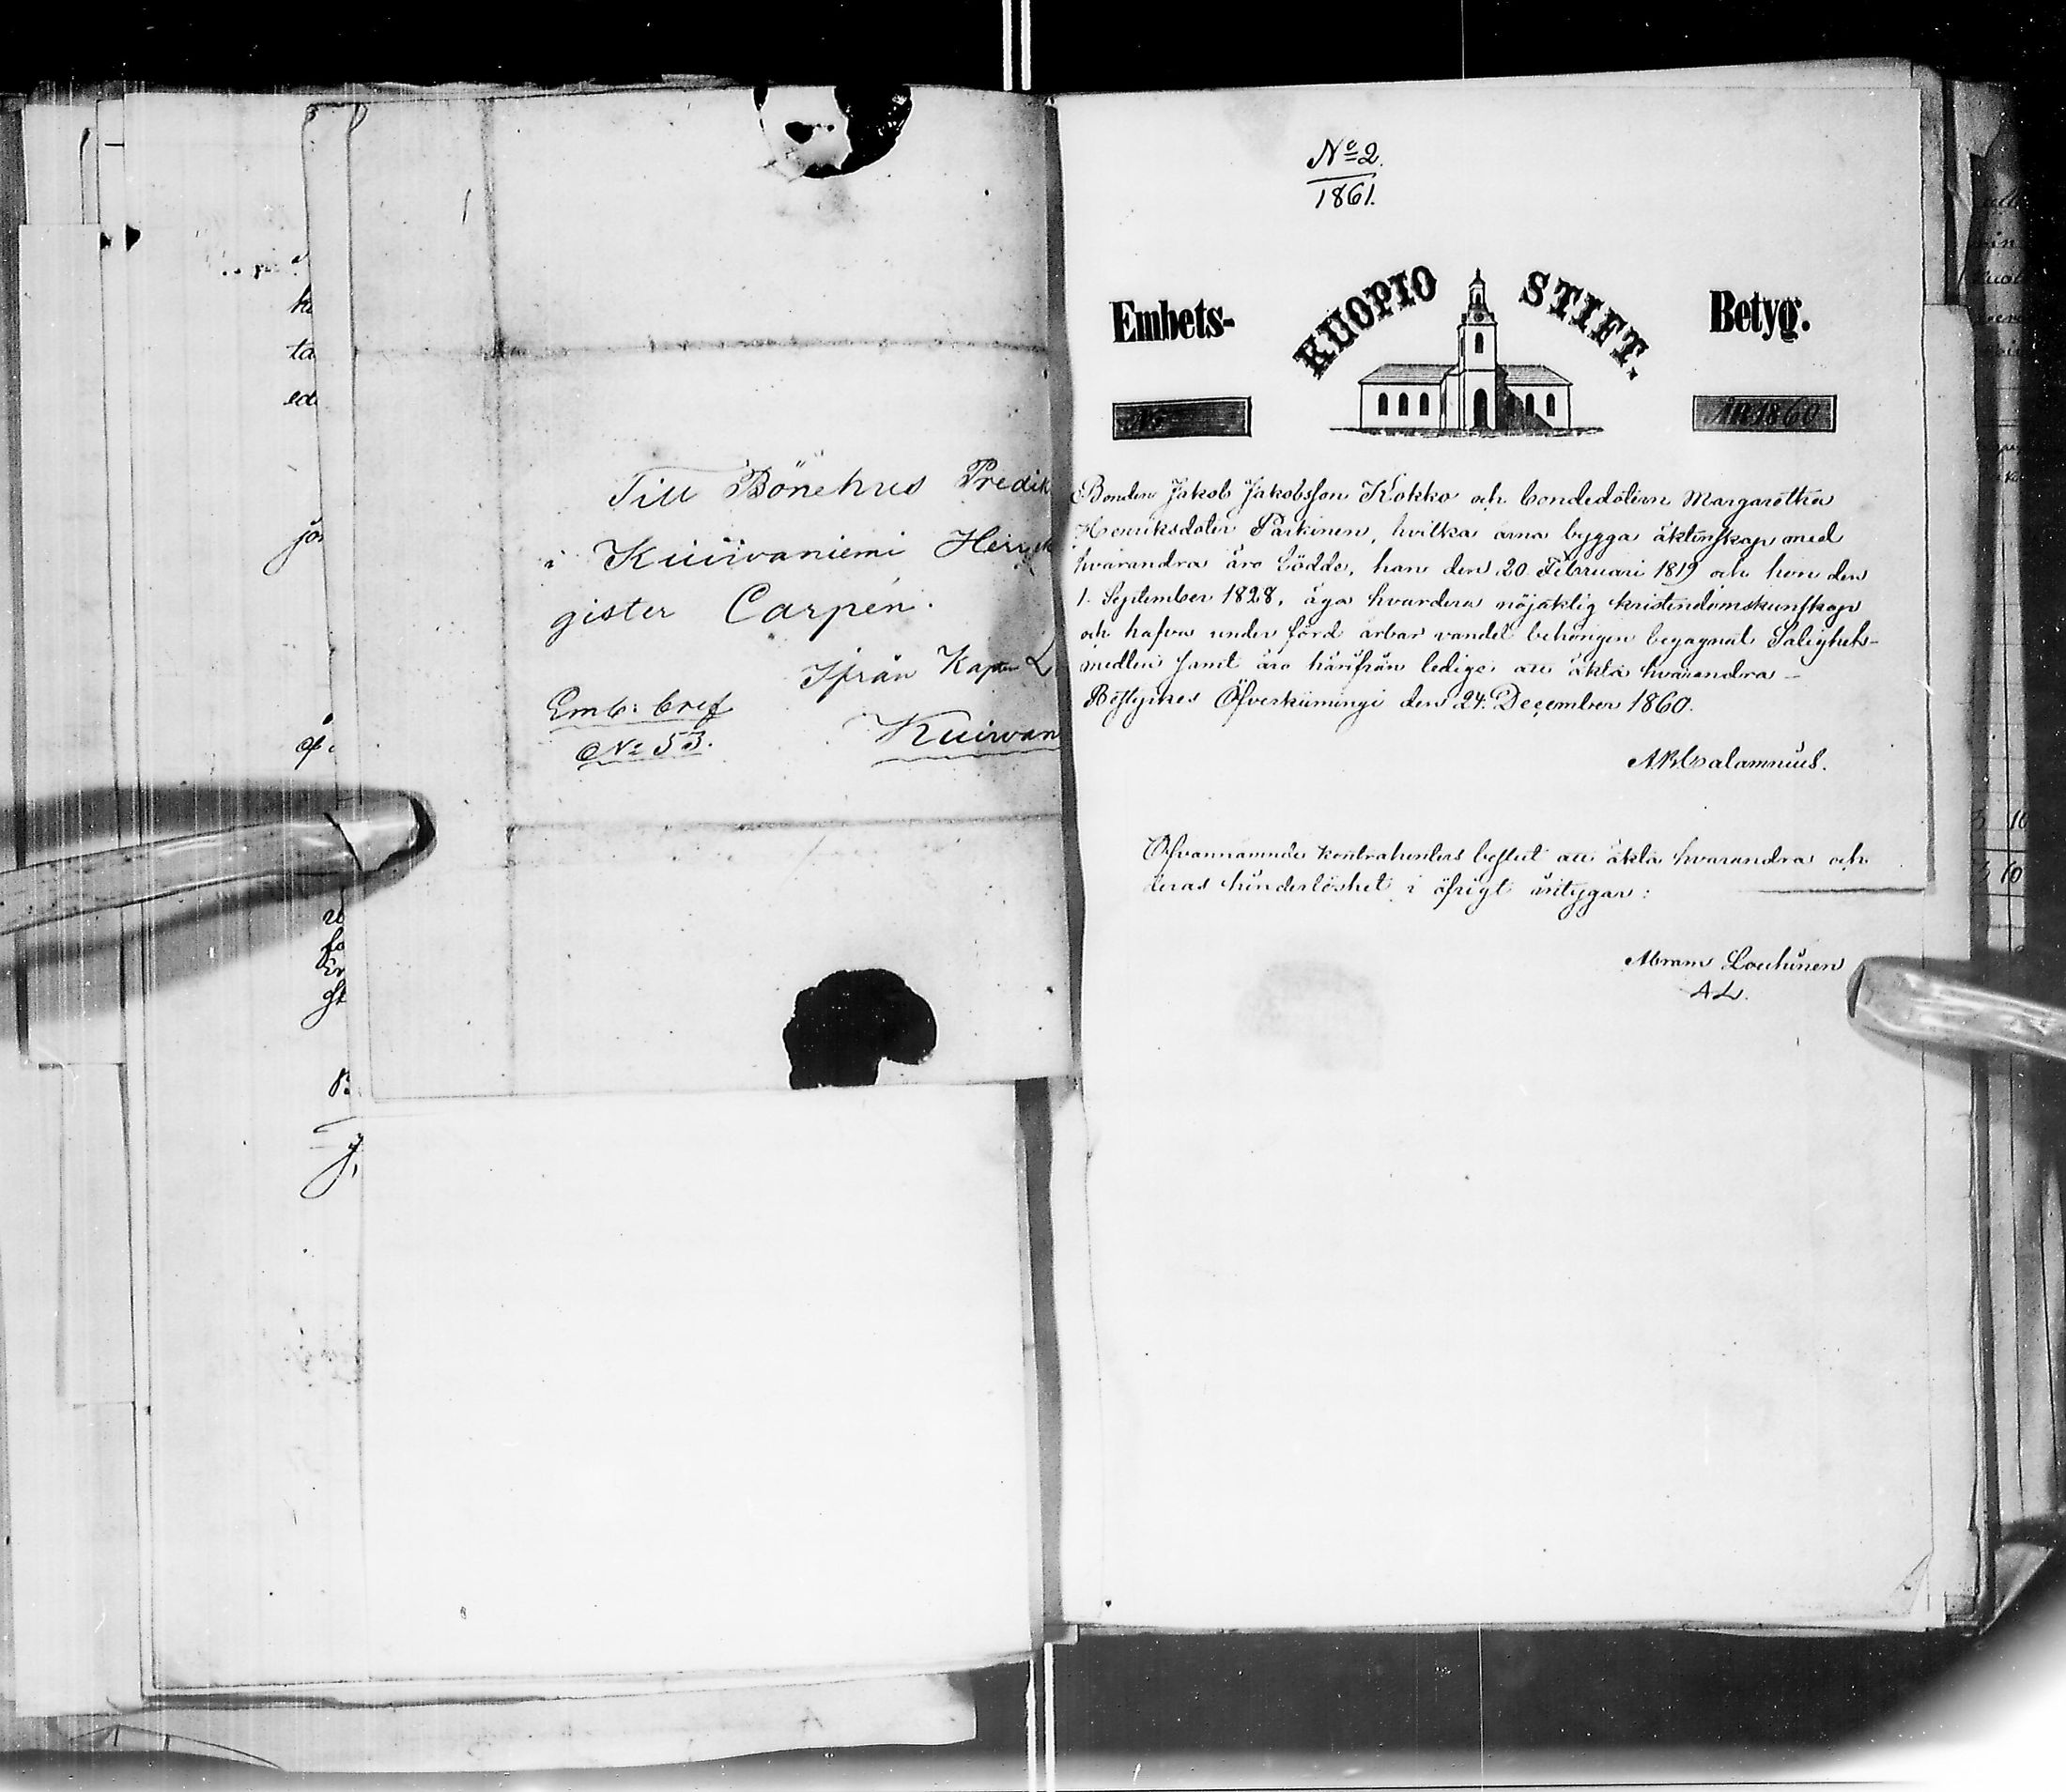 Till Bönehus Predik
i Kuiivaniemi Herr
gister Carpén.
Ifrån Kap L
Emb: bref
No 53.
Kuivan
No 2.
1861.
Embets-
KUOPIO STIFT.
Betyg.
No
ÅR 1860
Bonden Jakob Jakobsson Kokko och bondedottern Margaretha
Henriksdotter Parkinen, hvilka ärna bygga äktenskap med
hvarandra äro födde, han den 20 Februari 1819 och hon den
1. September 1828, äga hvardera nöjaktig kristendomskunskap
och hafva under förd ärbar vandel behörigen begagnat Salighets-
medlen samt äro härifrån ledige att äkta hvarandra –
Betygkes Öfverkiimingi den 24. December 1860.
A R Calamnius.
Ofvannämnde kontrahenters beslut att äkta hvarandra och
deras hinderlöshet i öfrigt intygar:
Abram Louhinen
A L.